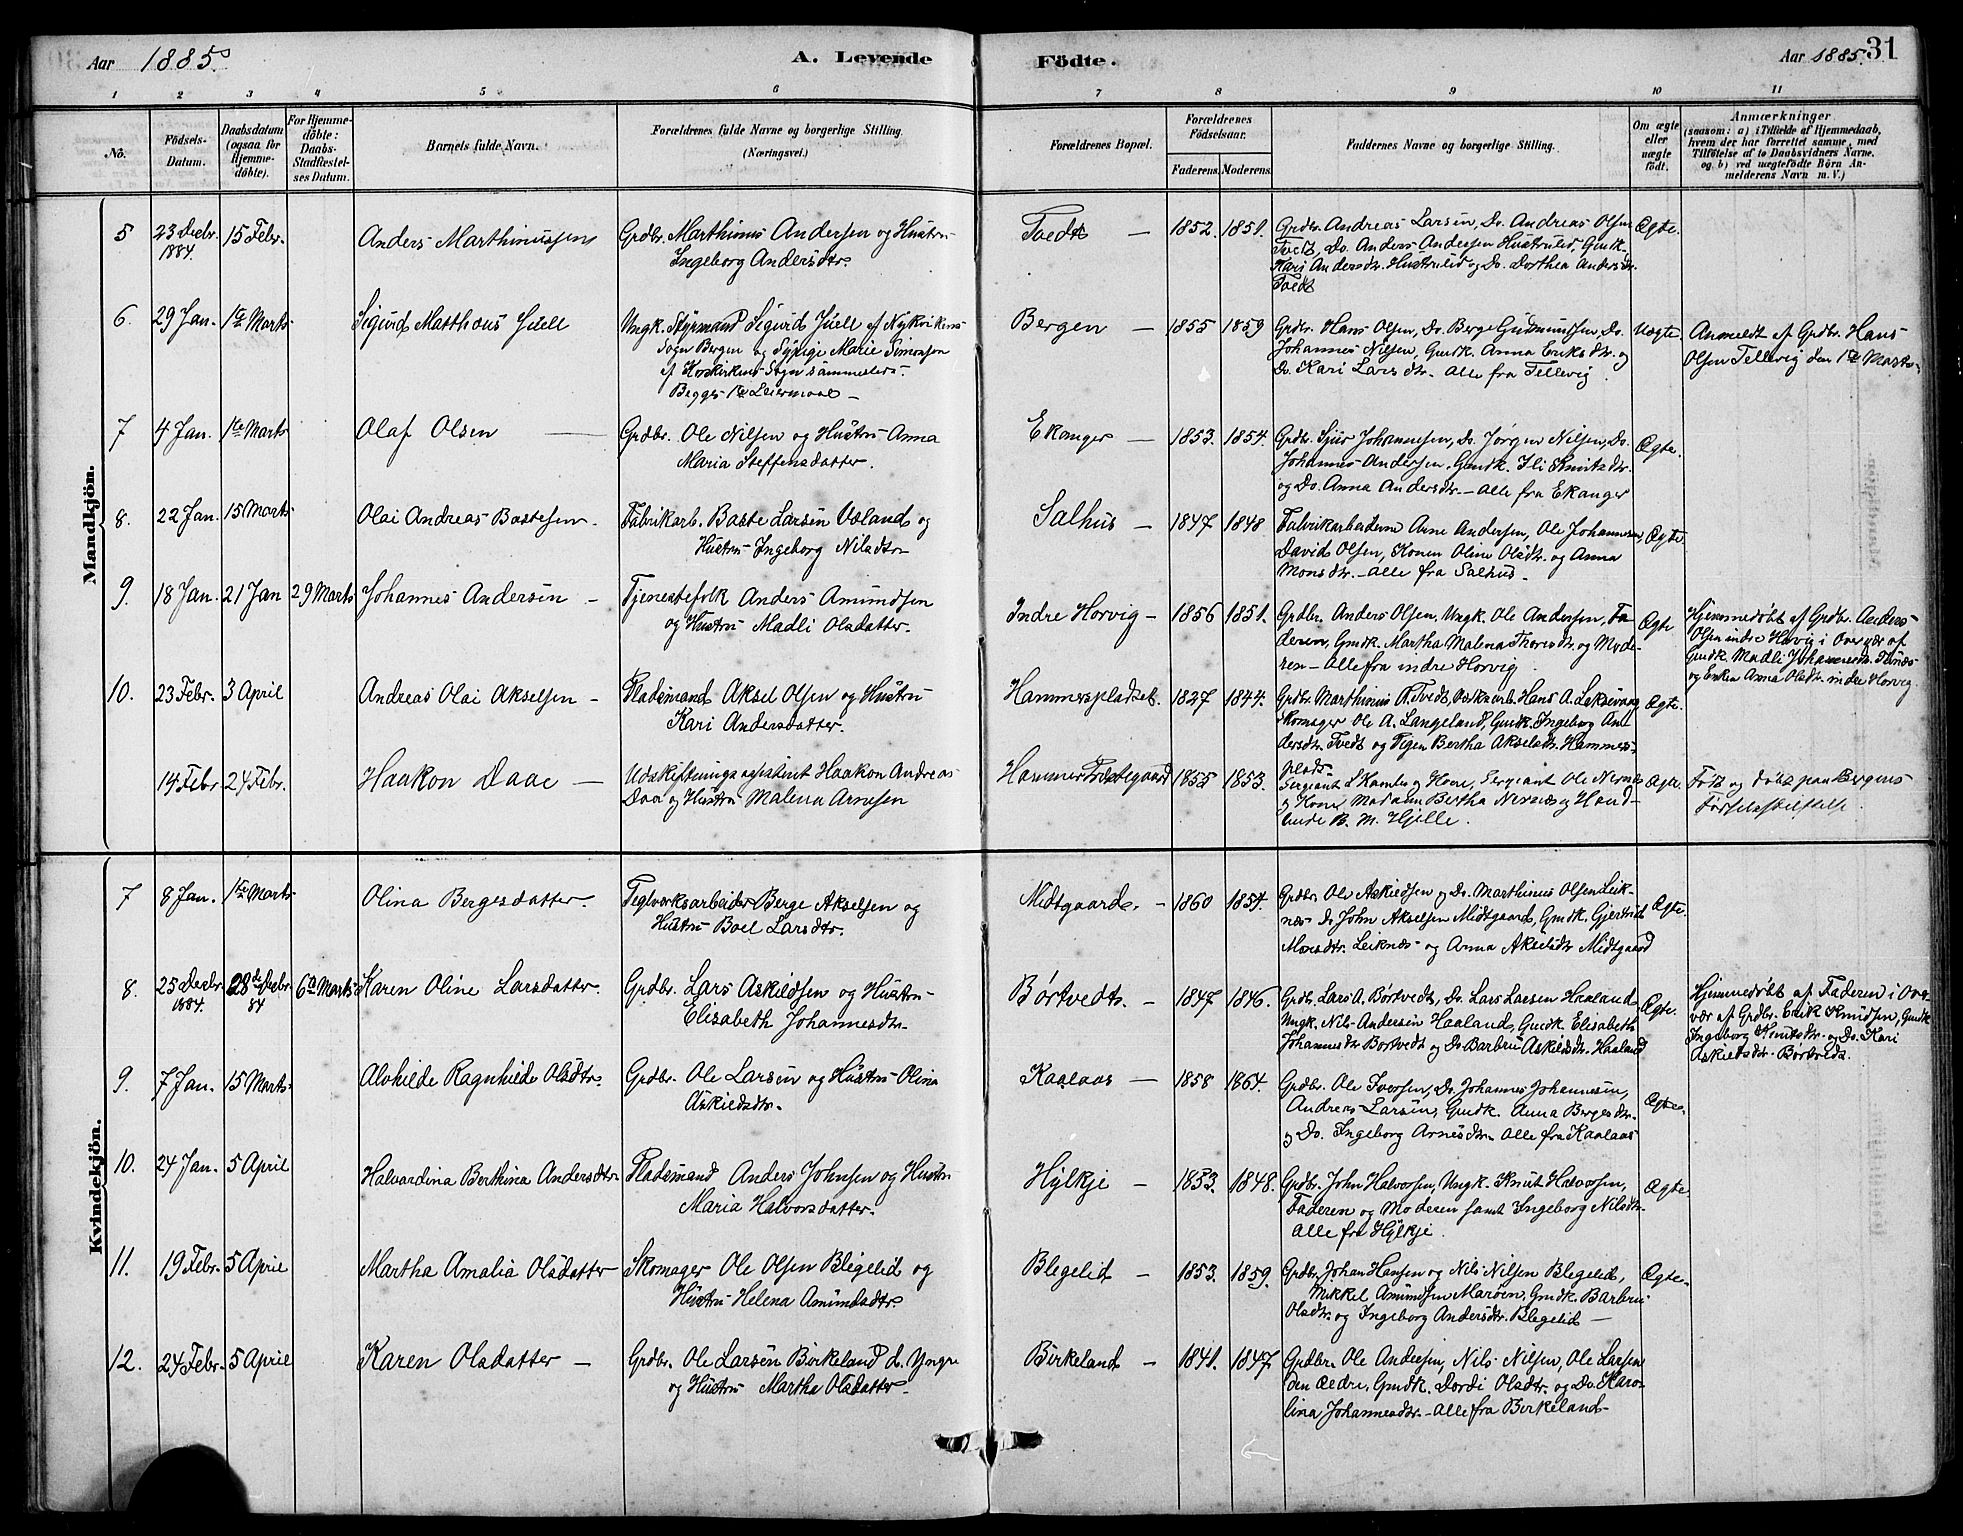 Aar 1885. A. Levende Födte. Aar 1885. 31
1 2 3 4 5 6 7 8 9 10 11
No.
Födsels-Datum.
Daabsdatum (ogsaa for Hjemme-döbte).
For Hjemme-döbte: Daabs-Stadfæstel-ses Datum.
Barnets fulde Navn.
Forældrenes fulde Navne og borgerlige Stilling. (Næringsvei.)
Forældrenes Bopæl.
Forældrenes Födselsaar.
Faderens. Moderens.
Faddernes Navne og borgerlige Stilling.
Om ægte eller uægte födt.
Anmærkninger
(saasom: a) i Tilfælde af Hjemmedaab,
hvem der har forrettet samme, med
Tilföielse af to Daabsvidners Navne,
og b) ved uægtefödte Börn An-
melderens Navn m. V.)
Mandkjön.
5 23 Decbr. 1884. 15 Febr. Anders Marthinussen
Grdbr. Marthinus Andersen og Hustru
Ingeborg Andersdtr.
Tvedt — 1852. 1851.
Grdbr. Andreas Larsen, Do. Andreas Olsen
Tvedt, Do. Anders Andersen Hustrulid, Gmdk.
Kari Andersdtr. Hustrulid og Do. Dorthea Andersdtr.
Tvedt
Ægte.
6. 29 Jan. 1ste Marts Sigurd Matthæus Juell
Ungk. Styrmand Sigurd Juell af Nykirkens
Sogn Bergen og Sypige Marie Simonsen
af Korskirkens Sogn sammesteds.
Begges 1ste Leiermaal —
Bergen — 1855 1859
Grdbr. Hans Olsen, Do. Berge Gudmundsen, Do.
Johannes Nilsen, Gmdk. Anna Eriksdtr. og
Do. Kari Larsdtr. Alle fra Tellevig
Uægte.
Anmeldt af Grdbr. Hans
Olsen Tellevig den 1ste Marts.
7 4 Jan. 1ste Marts Olaf Olsen —
Grdbr. Ole Nilsen og Hustru Anna
Maria Steffensdatter.
Ekanger — 1853. 1854.
Grdbr. Sjur Johannessen, Do. Jørgen Nilsen, Do.
Johannes Andersen, Gmdk. Ili Knutsdtr.
og Do. Anna Andersdtr. — Alle fra Ekanger
Ægte.
8. 22 Jan. 15 Marts Olai Andreas Bastesen.
Fabrikarb. Baste Larsen Uland og
Hustru Ingeborg Nilsdtr
Salhus — 1847 1848
Fabrikarbeiderne Arne Andersen, Ole Johannesen,
David Olsen, Konen Oline Olsdtr. og Anna
Monsdtr. — Alle fra Salhus.
Ægte.
9. 18 Jan. 21 Jan 29 Marts Johannes Andersen —
Tjenestefolk Anders Amundsen
og Hustru Madli Olsdatter.
Indre Horvig — 1856 1851.
Grdbr. Anders Olsen, Ungk. Ole Andersen, Fa-
deren, Gmdk. Martha Malena Thoresdtr. og Mode-
ren — Alle fra indre Horvig.
Ægte
Hjemmedøbt af Grdbr. Anders
Olsen indre Horvig i Overvær af
Gmdk. Madli Johannesdtr. Tunæs
og Enken Anna Olsdtr. indre Horvig.
10. 23 Febr. 3 April Andreas Olai Akselsen —
Pladsmand Aksel Olsen og Hustru
Kari Andersdatter.
Hammerspladset. 1827 1844.
Grdbr. Marthinus A. Tvedt, Hans A.
Skomager Ole A. Langeland, Gmdk. Ingeborg An-
dersdtr. Tvedt og Pigen Bertha Akselsdtr. Hammers-
plads.
Ægte.
14 Febr 24 Febr. Haakon Daae —
Udskiftningsassistent Haakon Andreas
Daae og Hustru Malena Arnesen
Hammer Præstegaard 1855 1853.
Sergiant L Kamli og Kone, Sergiant Ole Nernæs
og Kone, Madam Bertha Nernæs og Hand-
lende B. M. Hjelle.
Ægte.
Født og døbt paa Bergens
Fødselsstiftelse.
Kvindekjön.
7 8 Jan. 1ste Marts Olina Bergesdatter.
Teglverksarbeider Berge Akselsen og
Hustru Boel Larsdtr.
Midtgaard. — 1860 1854.
Grdbr. Ole Askildsen og Do. Marthinus Olsen Leik-
næs Do. John Akselsen Midtgaard, Gmdk. Gjertrud
Monsdtr. Leiknæs og Anna Akselsdtr Midtgaard
Ægte.
8. 25 Decbr. 1884. 28de Decbr 84 6te Marts Karen Oline Larsdatter.
Grdbr. Lars Askildsen og Hustru
Elisabeth Johannesdtr.
Børtvedt. — 1847 1846.
Grdbr. Lars A. Børtvedt, Do. Lars Larsen Haaland
Ungk. Nils Andersen Haaland, Gmdk. Elisabeth
Johannesdtr Børtvedt og Do. Barbru Askildsdtr. Haaland
Ægte.
Hjemmedøbt af Faderen i Over-
vær af Grdbr. Erik Knudsen, Gmdk
Ingeborg Knutsdtr. og Do. Kari
Askildsdtr. Børtvedt.
9. 7 Jan. 15 Marts Alvhilde Ragnhilde Olsdtr.
Grdbr. Ole Larsen og Hustru Olina
Askildsdtr.
Kaalaas — 1858 1864.
Grdbr. Ole Iversen, Do. Johannes Johannesen,
Andreas Larsen, Gmdk. Anna Bergesdtr.
og Do. Ingeborg Arnesdtr. Alle fra Kaalaas
Ægte.
10. 24 Jan. 5 April Halvardina Berthina Andersdtr.
Pladsmand Anders Johnsen og Hustru
Maria Halvorsdatter.
Hylkje — 1853. 1848.
Grdbr. John Halvorsen, Ungk. Knut Halvorsen,
Faderen og Moderen samt Ingeborg Nilsdtr.
Alle fra Hylkje.
Ægte.
11. 19 Febr. 5 April Martha Amalia Olsdatter
Skomager Ole Olsen Blegelid og
Hustru Helena Amundsdtr.
Blegelid — 1853. 1859.
Grdbr. Johan Hansen og Nils Nilsen Blegelid,
Mikkel Amundsen Marøen, Gmdk. Barbru
Olsdtr. og Ingeborg Andersdtr. Blegelid —
Ægte.
12. 24 Febr. 5 April Karen Olsdatter —
Grdbr. Ole Larsen Birkeland d. Yngre
og Hustru Martha Olsdatter.
Birkeland — 1841. 1847
Grdbr. Ole Andersen, Nils Nilsen, Ole Larsen
den ældre, Gmdk. Dordi Olsdtr. og Do. Karo-
lina Johannesdtr. — Alle fra Birkeland